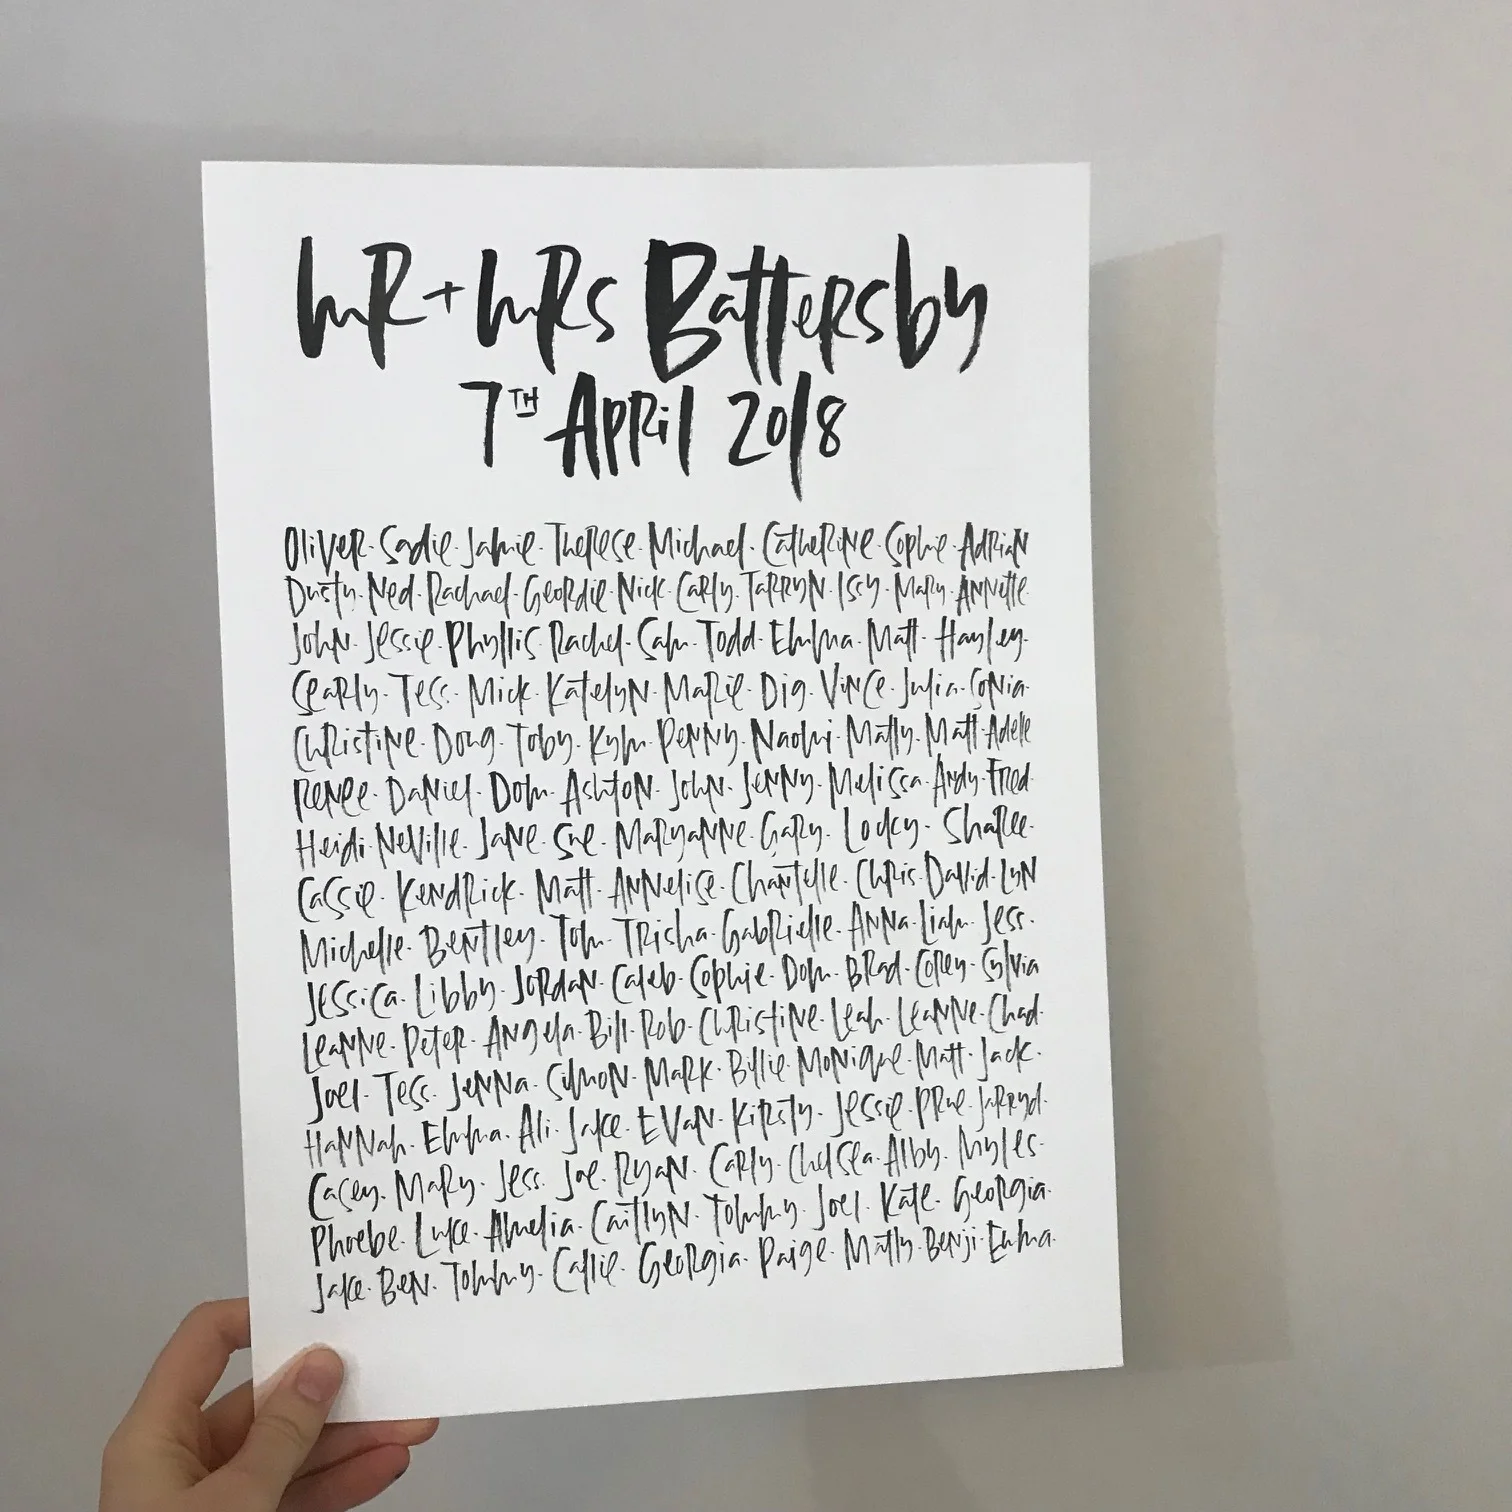 MR + MRS Battersby
7TH April 2018
Oliver · Sadie · Jamie · Therese · Michael · Catherine · Sophie · Adrian
Dusty · Ned · Rachael · Geordie · Nick · Carly · Tarryn · Issy · Mary · Annette
John · Jessie · Phyllis · Rachel · Sam · Todd · Emma · Matt · Hayley ·
Searly · Tess · Mick · Katelyn · Marie · Dig · Vince · Julia · Sonia ·
Christine · Doug · Toby · Kym · Penny · Naomi · Matty · Matt · Adele
Renee · Daniel · Dom · Ashton · John · Jenny · Melissa · Andy · Fred ·
Heidi · Neville · Jane · Sue · Maryanne · Gary · Locky · Sharee ·
Cassie · Kendrick · Matt · Annelise · Chantelle · Chris · David · Lyn
Michelle · Bentley · Tom · Trisha · Gabrielle · Anna · Liam · Jess ·
Jessica · Libby · Jordan · Caleb · Sophie · Dom · Brad · Corey · Sylvia
Leanne · Peter · Angela · Bill · Rob · Christine · Leah · Leanne · Chad ·
Joel · Tess · Jenna · Simon · Mark · Billie · Monique · Matt · Jack ·
Hannah · Emma · Ali · Jake · Evan · Kirsty · Jessie · Prue · Jarryd ·
Casey · Mary · Jess · Joe · Ryan · Carly · Chelsea · Alby · Myles ·
Phoebe · Luke · Amelia · Caitlyn · Tommy · Joel · Kate · Georgia ·
Jake · Ben · Tommy · Callie · Georgia · Paige · Matty · Benji · Emma ·